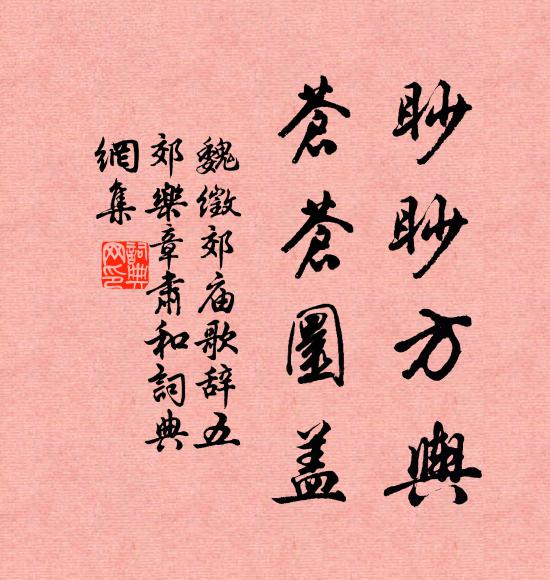 眇眇方輿
蒼蒼圜盖
魏徵郊庙歌辞五
郊樂章肅和詞典
網集
詞典
网印